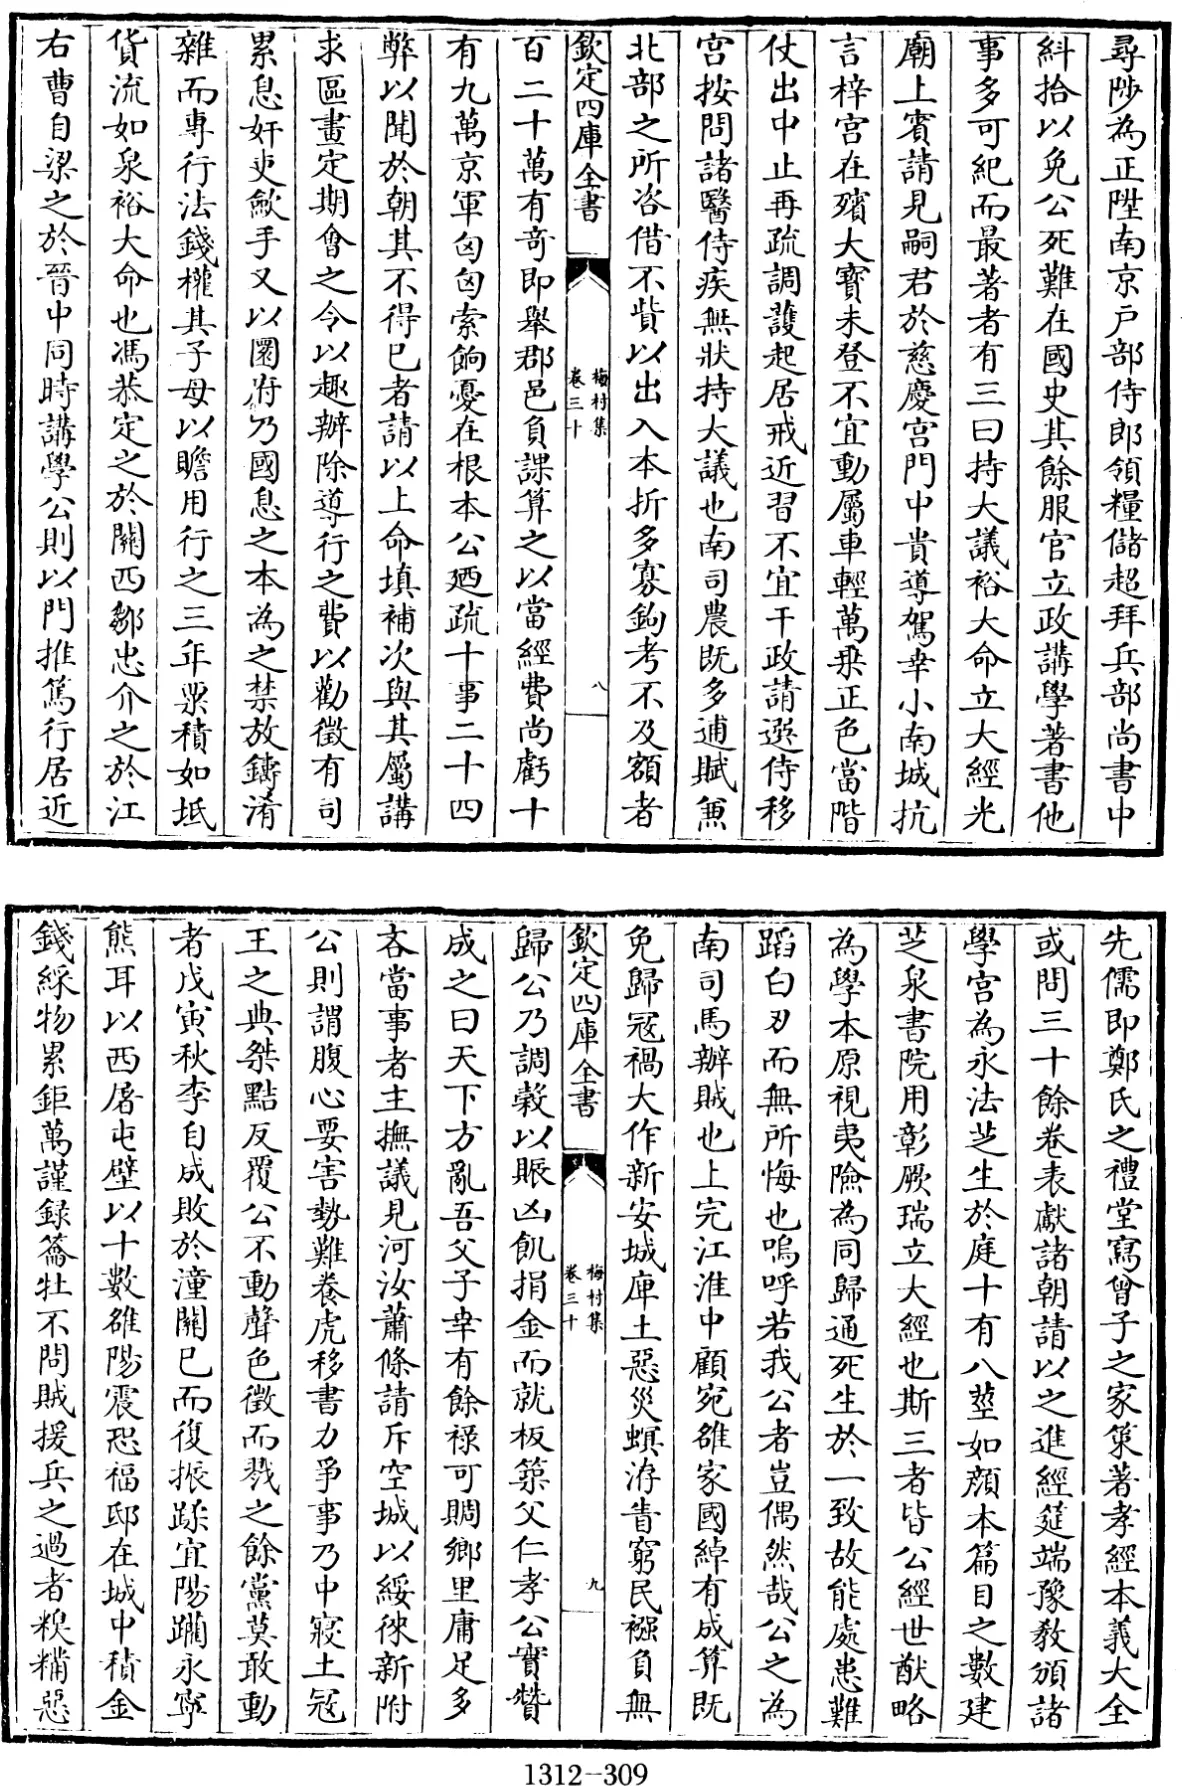 尋陟為正陞南京户部侍郎領糧儲超拜兵部尚書中
糾拾以免公死難在國史其餘服官立政講學著書他
事多可紀而最著者有三曰持大議裕大命立大經光
廟上賓請見嗣君於慈慶宮門中貴導駕幸小南城抗
言梓宮在殯大寶未登不宜動屬車輕萬乗正色當階
仗出中止再疏調護起居戒近習不宜干政請選侍移
宮按問諸醫侍疾無狀持大議也南司農既多逋賦兼
北部之所咨借不貲以出入本折多寡鉤考不及額者
欽定四庫全書
梅村集
卷三十
八
百二十萬有奇即舉郡邑負課算之以當經費尚虧十
有九萬京軍匈匈索餉憂在根本公廼疏十事二十四
弊以聞於朝其不得已者請以上命填補次與其屬講
求區畫定期會之令以趣辦除導行之費以勸徵有司
累息奸吏斂手又以圜府乃國息之本為之禁放鑄淆
雜而專行法錢權其子母以贍用行之三年粟積如坻
貨流如泉裕大命也馮恭定之於關西鄒忠介之於江
右曹自梁之於晉中同時講學公則以門推篤行居近
先儒即鄭氏之禮堂寫曾子之家策著孝經本義大全
或問三十餘卷表獻諸朝請以之進經筵端豫教頒諸
學宮為永法芝生於庭十有八莖如顔本篇目之數建
芝泉書院用彰厥瑞立大經也斯三者皆公經世猷略
為學本原視夷險為同歸通死生於一致故能處患難
蹈白刃而無所悔也嗚呼若我公者豈偶然哉公之為
南司馬辦賊也上完江淮中顧宛雒家國綽有成算既
免歸冦禍大作新安城庳土惡災螟洊眚窮民襁負無
欽定四庫全書
梅村集
卷三十
九
歸公乃調榖以賑凶飢捐金而就板築父仁孝公實贊
成之曰天下方亂吾父子幸有餘祿可賙鄉里庸足多
吝當事者主撫議見河汝蕭條請斥空城以綏徠新附
公則謂腹心要害勢難養虎移書力爭事乃中寢土冦
王之典桀黠反覆公不動聲色徵而戮之餘黨莫敢動
者戊寅秋李自成敗於潼關已而復振蹂宜陽躪永寧
熊耳以西屠屯壁以十數雒陽震恐福邸在城中積金
錢綵物累鉅萬謹録籥牡不問賊援兵之過者糗糒惡
1312-309